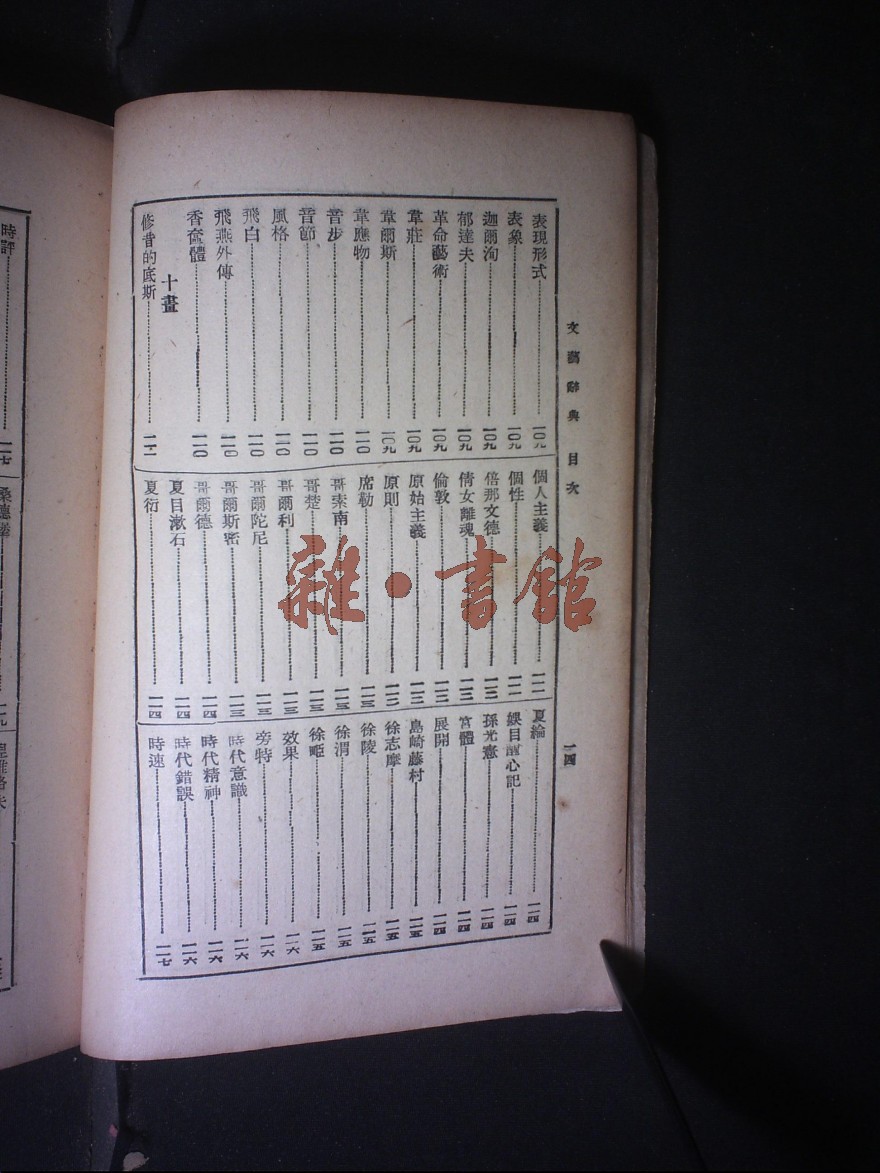 文藝辭典 目次
一四
表現形式 一〇九
表象 一〇九
迦爾洵 一〇九
郁達夫 一〇九
革命藝術 一〇九
韋莊 一〇九
韋爾斯 一〇九
韋應物 一一〇
音步 一一〇
音節 一一〇
風格 一一〇
飛白 一一〇
飛燕外傳 一一〇
香奩體 一一〇
十畫
修昔的底斯
個人主義 一一一
個性
倍那文德
倩女離魂
倫敦
原始主義
原則
席勒
哥索南
哥楚
哥爾利
哥爾陀尼
哥爾斯密
哥爾德 一一四
夏目漱石 一一四
夏衍 一一四
夏綸 一一四
綵目醒心記 一一四
孫光憲 一一四
宮體 一一四
展開 一一四
島崎藤村 一一五
徐志摩 一一五
徐陵 一一五
徐渭 一一五
徐𤱹 一一五
效果 一一六
旁特 一一六
時代意識 一一六
時代精神 一一六
時代錯誤 一一六
時速 一一七
時評 一一七
雜·書館